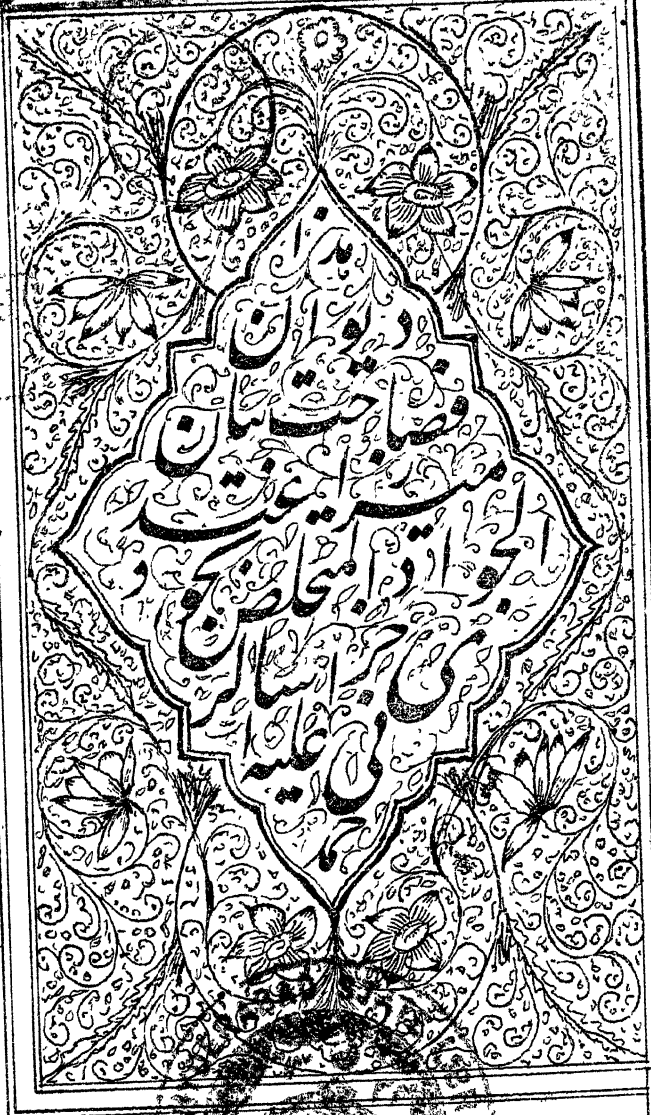 هذا
دیوان
فصاحت بنیان
میرزا عبد
الجواد المتخلص بجو
دی خراسا
نی علیه الر
حمه